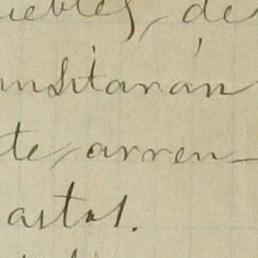 uebles, de
nsitarán
te, arren-
astos.